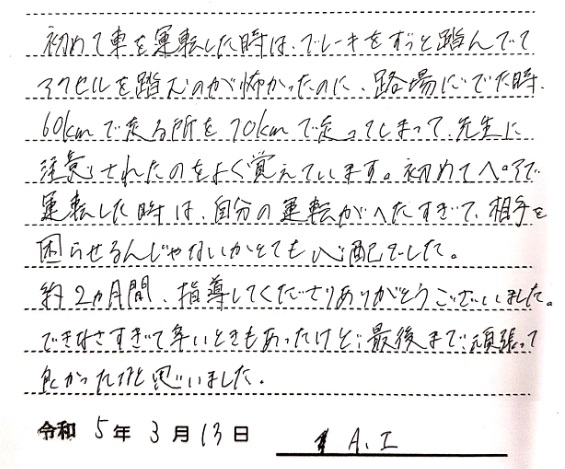 初めて車を運転した時は、ブレーキをずっと踏んでて
アクセルを踏むのが怖かったのに、路場にでた時、
60kmで走る所を70kmで走ってしまって、先生に
注意されたのをよく覚えています。初めてペアで
運転した時は、自分の運転がへたすぎて、相手を
困らせるんじゃないかとても心配でした。
約2カ月間、指導してくださりありがとうございました。
できなさすぎて辛いときもあったけど、最後まで頑張って
良かったなと思いました。
令和 5年 3月 13日 A.I